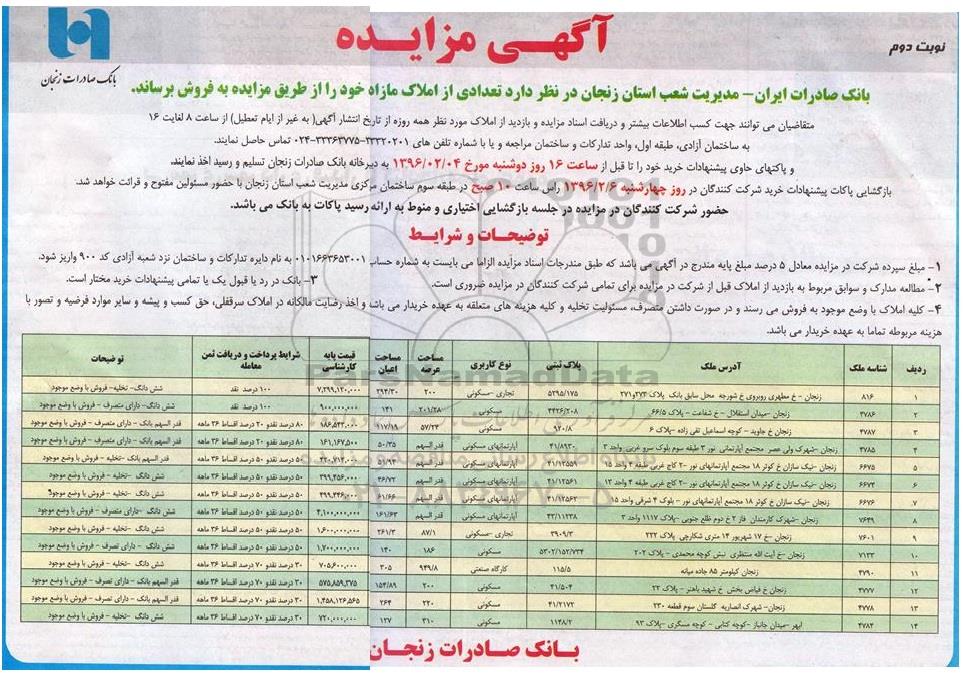 نوبت دوم
آگهی مزایده
بانک صادرات زنجان
بانک صادرات ایران- مدیریت شعب استان زنجان در نظر دارد تعدادی از املاک مازاد خود را از طریق مزایده به فروش برساند.
متقاضیان می توانند جهت کسب اطلاعات بیشتر و دریافت اسناد مزایده و بازدید از املاک مورد نظر همه روزه از تاریخ انتشار آگهی( به غیر از ایام تعطیل) از ساعت ۸ لغایت ۱۶
به ساختمان آزادی، طبقه اول، واحد تدارکات و ساختمان مراجعه و یا با شماره تلفن های ۳۳۳۲۰۲۰۱-۳۳۳۶۳۷۷۵-۰۲۴ تماس حاصل نمایند.
و پاکتهای حاوی پیشنهادات خرید خود را تا قبل از ساعت ۱۶ روز دوشنبه مورخ ۱۳۹۶/۰۲/۰۴ به دبیرخانه بانک صادرات زنجان تسلیم و رسید اخذ نمایند.
بازگشایی پاکات پیشنهادات خرید شرکت کنندگان در روز چهارشنبه ۱۳۹۶/۲/۶ راس ساعت ۱۰ صبح در طبقه سوم ساختمان مرکزی مدیریت شعب استان زنجان با حضور مسئولین مفتوح و قرائت خواهد شد.
حضور شرکت کنندگان در مزایده در جلسه بازگشایی اختیاری و منوط به ارائه رسید پاکات به بانک می باشد.
توضیحات و شرایط
۱- مبلغ سپرده شرکت در مزایده معادل ۵ درصد مبلغ پایه مندرج در آگهی می باشد که طبق مندرجات اسناد مزایده الزاما می بایست به شماره حساب ۰۱۰۱۶۶۳۶۵۳۰۰۱ به نام دایره تدارکات و ساختمان نزد شعبه آزادی کد ۹۰۰ واریز شود.
۲- مطالعه مدارک و سوابق مربوط به بازدید از املاک قبل از شرکت در مزایده برای تمامی شرکت کنندگان در مزایده ضروری است. ۳- بانک در رد یا قبول یک یا تمامی پیشنهادات خرید مختار است.
۴- کلیه املاک با وضع موجود به فروش می رسند و در صورت داشتن متصرف، مسئولیت تخلیه و کلیه هزینه های متعلقه به عهده خریدار می باشد و اخذ رضایت مالکانه در املاک سرقفلی، حق کسب و پیشه و سایر موارد فرضیه و تصور با
هزینه مربوطه تماما به عهده خریدار می باشد.
ردیف شناسه ملک آدرس ملک پلاک ثبتی نوع کاربری مساحت عرصه مساحت اعیان قیمت پایه کارشناسی شرایط پرداخت و دریافت ثمن معامله توضیحات
۱ ۸۱۶ زنجان - خ مطهری روبروی خ شورجه محل سابق بانک پلاک ۲۷۳و۲۷۱ ۵۲۹۵/۱۷۵ تجاری -مسکونی ۲۰۰ ۲۹۴/۳۰ ۷,۲۹۹,۱۲۰,۰۰۰ ۱۰۰ درصد نقد شش دانگ- تخلیه- فروش با وضع موجود
۲ ۴۷۸۶ زنجان -میدان استقلال - خ شفاعت - پلاک ۶۶/۵ ۴۴۲۶/۲۰۸ مسکونی ۲۰۱/۲۸ ۱۴۱ ۹۰۰,۰۰۰,۰۰۰ ۱۰۰ درصد نقد شش دانگ- دارای متصرف - فروش با وضع موجود
۳ ۴۷۸۷ زنجان خ جاوید - کوچه اسماعیل تقی زاده -پلاک ۶ ۹۲۰/۸ مسکونی ۵۷/۲۴ ۱۸۶,۵۴۳,۰۰۰ ۸۰ درصد نقدو ۲۰ درصد اقساط ۳۶ ماهه قدر السهم بانک - دارای متصرف - فروش با وضع موجود
۴ ۴۷۸۵ زنجان -شهرک ولی عصر مجتمع آپارتمانی نور ۲ طبقه سوم بلوک غربی واحد ۳ ۴۱/۸۹۳۰ آپارتمانهای مسکونی قدر السهم ۵۰/۳۵ ۱۶۱,۱۶۷,۵۰۰ ۸۰ درصد نقدو ۲۰ درصد اقساط ۳۶ ماهه قدر السهم بانک - دارای متصرف - فروش با وضع موجود
۵ ۶۶۷۵ زنجان -نیک سازان خ کوثر ۱۸ مجتمع آپارتمانهای نور -۲ کاج غربی طبقه ۴ واحد ۱۵ ۴۱/۱۲۵۵۹ آپارتمانهای مسکونی قدر السهم ۵۱/۹۳ ۵۰ درصد نقدو ۵۰ درصد اقساط ۳۶ ماهه شش دانگ -تخلیه - فروش با وضع موجود
۶ ۶۶۷۴ زنجان -نیک سازان خ کوثر ۱۸ مجتمع آپارتمانهای نور -۲ کاج غربی طبقه ۴ واحد ۱۳ ۴۱/۱۲۵۶۱ آپارتمانهای مسکونی قدر السهم ۴۶/۷۲ ۳۹۹,۴۵۶,۰۰۰ ۵۰ درصد نقدو ۵۰ درصد اقساط ۳۶ ماهه شش دانگ -تخلیه - فروش با وضع موجود
۷ ۶۶۷۶ زنجان -نیک سازان خ کوثر ۱۸ مجتمع آپارتمانهای نور - بلوک ۴ شرقی واحد ۱۵ ۴۱/۱۲۵۶۲ آپارتمانهای مسکونی قدر السهم ۶۱/۶۶ ۴۹۹,۴۴۶,۰۰۰ ۵۰ درصد نقدو ۵۰ درصد اقساط ۳۶ ماهه شش دانگ -تخلیه - فروش با وضع موجود
۸ ۷۶۴۹ زنجان -شهرک کارمندان فاز ۲ خ دوم ظلع جنوبی -پلاک ۱۱۱۷ واحد ۳ ۴۳/۱۱۲۳۸ آپارتمانهای مسکونی قدر السهم ۱۶۱/۶۳ ۴,۱۰۰,۰۰۰,۰۰۰ ۵۰ درصد نقدو ۵۰ درصد اقساط ۳۶ ماهه شش دانگ -تخلیه - فروش با وضع موجود
۹ ۷۶۰۱ زنجان -خ ۱۷ شهریور ۱۴ متری شکارچی پلاک ۲۲۲ ۳۹۰۹/۳ تجاری -مسکونی ۸۷/۱ ۲۶۱/۳ ۱,۶۰۰,۰۰۰,۰۰۰ ۵۰ درصد نقدو ۵۰ درصد اقساط ۳۶ ماهه شش دانگ -تخلیه - فروش با وضع موجود
۱۰ ۷۱۳۳ زنجان -خ آیت الله منتظری نبش کوچه محمدی - پلاک ۲۰۲ ۵۳۰۲/۱۵۲/۷۳۴ مسکونی ۱۸۶ ۱۴۰ ۱,۷۰۰,۰۰۰,۰۰۰ ۵۰ درصد نقدو ۵۰ درصد اقساط ۳۶ ماهه شش دانگ - دارای تصرف - فروش با وضع موجود
۱۱ ۴۷۹۰ زنجان کیلومتر ۸۵ جاده میانه ۱۱۵/۵ کارگاه صنعتی ۹۴۹/۸ ۳۰۵ ۷۰۵,۶۰۰,۰۰۰ ۳۰ درصد نقدو ۷۰ درصد اقساط ۳۶ ماهه شش دانگ -تخلیه - فروش با وضع موجود
۱۲ ۴۷۷۷ زنجان خ فیاض بخش خ شهید باهنر - پلاک ۲۲ ۴۱/۵۰۴ مسکونی ۲۰۰ ۱۵۴/۸۹ ۵۷۵,۸۵۹,۳۷۵ ۳۰ درصد نقدو ۷۰ درصد اقساط ۳۶ ماهه قدر السهم بانک - دارای تصرف - فروش با وضع موجود
۱۳ ۴۷۷۸ زنجان- شهرک انصاریه گلستان سوم قطعه ۲۳۰ ۴۱/۲۱۷۲ مسکونی ۲۲۰ ۲۶۴ ۱,۴۵۸,۱۲۶,۵۶۵ ۳۰ درصد نقدو ۷۰ درصد اقساط ۳۶ ماهه قدر السهم بانک - دارای تصرف - فروش با وضع موجود
۱۴ ۴۷۸۴ ابهر -میدان جانباز -کوچه کتابی - کوچه مسگری -پلاک ۹۳ ۱۱۴۸/۲ مسکونی ۳۱۰ ۱۲۷ ۷۲۰,۰۰۰,۰۰۰ ۳۰ درصد نقدو ۷۰ درصد اقساط ۳۶ ماهه شش دانگ -تخلیه - فروش با وضع موجود
بانک صادرات زنجان
ParsNamadData